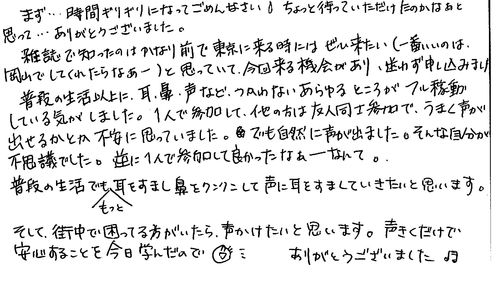 まず…時間ギリギリになってごめんなさい！ちょっと待っていただけたのかなぁと
思って…ありがとうございました。
雑誌で知ったのはかなり前で東京に来る時にはぜひ来たい(一番いいのは、
岡山でしてくれたらなぁー)と思っていて、今回来る機会があり、迷わず申し込みました
普段の生活以上に、耳、鼻、声など、つかわないあらゆるところがフル稼動
している気がしました。1人で参加して、他の方は友人同士参加で、うまく声が
出せるかとか不安に思っていました。でも自然に声が出ました。そんな自分が
不思議でした。逆に1人で参加して良かったなぁーなんて。
普段の生活でも耳をすまし鼻をクンクンして声に耳をすましていきたいと思います。
もっと
そして、街中で困ってる方がいたら、声かけたいと思います。声きくだけで
安心することを今日学んだので ありがとうございました